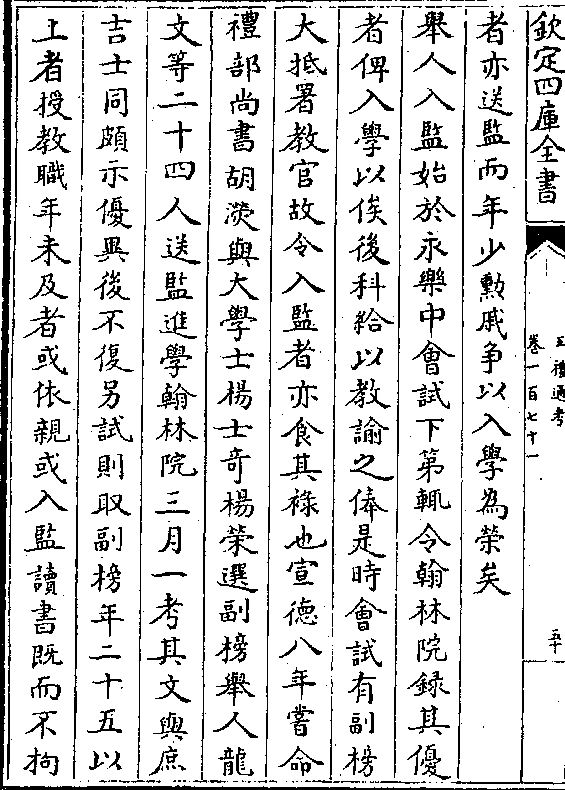 欽定四庫全書
五禮通考
卷一百七十一
五十
者亦送監而年少勲戚争以入學為榮矣
舉人入監始於永樂中會試下第輒令翰林院録其優
者俾入學以俟後科給以教諭之俸是時會試有副榜
大抵署教官故令入監者亦食其禄也宣德八年嘗命
禮部尚書胡濙與大學士楊士竒楊榮選副榜舉人龍
文等二十四人送監進學翰林院三月一考其文與庶
吉士同頗示優異後不復另試則取副榜年二十五以
上者授教職年未及者或依親或入監讀書既而不拘